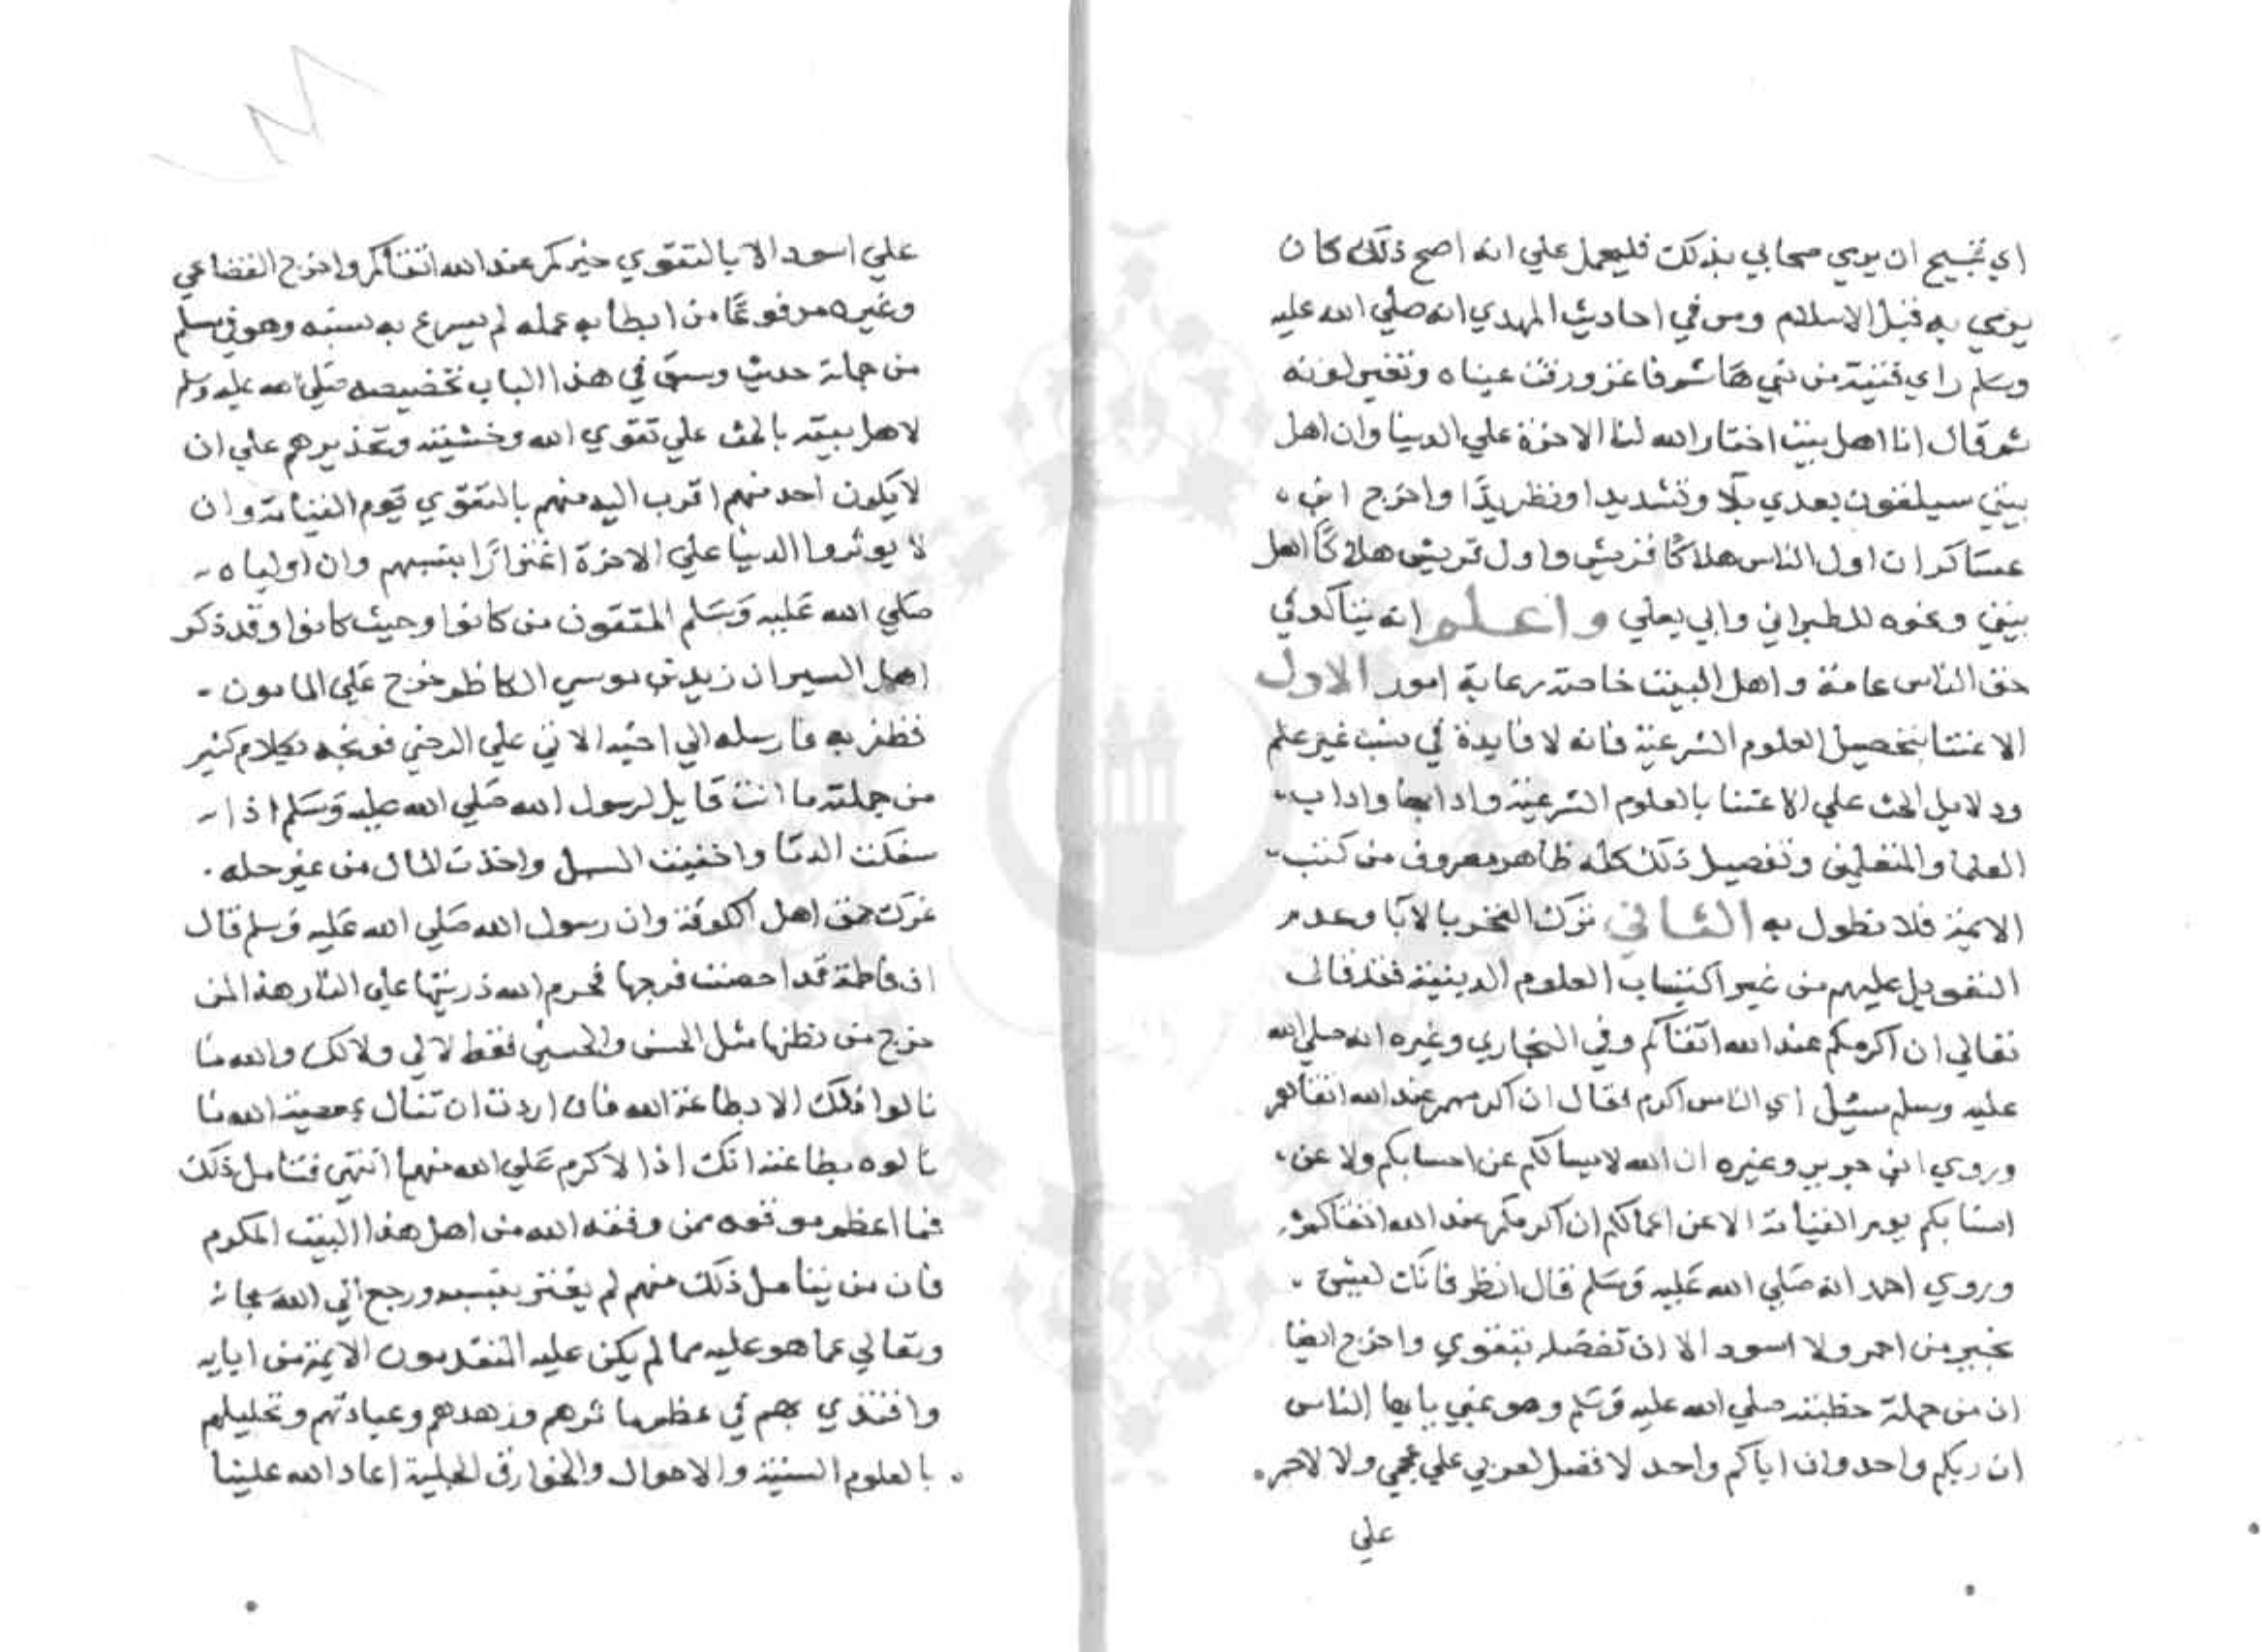 اي تبيح ان يرمي صحابي بذلك فليعمل علي انه اصح ذلك كان
يرمي به قبل الاسلام ومن في احاديث المهدي انه صلي الله عليه
وسلم راي فتية من بني هاشم فاغرورقت عيناه وتغير لونه
ثم قال انا اهل بيت اختار الله لنا الاخرة علي الدنيا وان اهل
بيتي سيلقون بعدي بلا وتشديدا وتطريدًا واخرج ابن
عساكر ان اول الناس هلاكًا قريش واول قريش هلاكًا اهل
بيتي ونحوه للطبراني وابي يعلي واعلم انه يتاكد في
حق الناس عامة واهل البيت خاصة رعاية امور الاول
الاعتنا بتحصيل العلوم الشرعية فانه لا فايدة في نسب غير علم
ودلايل الحث علي الاعتنا بالعلوم الشرعية وادابها واداب
العلما والمتعلمين وتفصيل ذلك كله ظاهر معروف من كتب
الايمة فلا نطول به الثاني ترك الفخر بالابا وعدم
التعويل عليهم من غير اكتساب العلوم الدينية فقد قال
تعالي ان اكرمكم عند الله اتقاكم وفي البخاري وغيره انه صلي الله
عليه وسلم سئيل اي الناس اكرم فقال ان اكرمهم عند الله اتقاهم
وروي ابن جرير وغيره ان الله لا يسالكم عن احسابكم ولا عن
انسابكم يوم القيامة الا عن اعمالكم ان اكرمكم عند الله اتقاكم
وروي احمد انه صلي الله عليه وسلم قال انظر فانك ليس
بخير من احمر ولا اسود الا ان تفضله بتقوي واخرج ايضا
ان من جملة خطبته صلي الله عليه وسلم وهو بمني يا ايها الناس
ان ربكم واحد وان اباكم واحد لا فضل لعربي علي عجمي ولا لاحمر
علي
علي اسود الا بالتقوي خيركم عند الله اتقاكم واخرج القضاعي
وغيره مرفوعًا من ابطا به عمله لم يسرع به نسبه وهو في مسلم
من جملة حديث وسبق في هذا الباب تخصيصه صلي الله عليه وسلم
لاهل بيته بالحث علي تقوي الله وخشيته وتحذيرهم علي ان
لا يكون احد منهم اقرب اليه منهم بالتقوي يوم القيامة وان
لا يوثروا الدنيا علي الاخرة اغترارًا بنسبهم وان اولياه
صلي الله عليه وسلم المتقون من كانوا وحيث كانوا وقد ذكر
اهل السير ان زيد بن موسي الكاظم خرج علي المامون
فظفر به فارسله الي اخيه الاتي علي الرضي فوبخه بكلام كثير
من جملته ما انت قايل لرسول الله صلي الله عليه وسلم اذا
سفكت الدما واخفيت السبل واخذت المال من غير حله
غرك حمق اهل الكوفة وان رسول الله صلي الله عليه وسلم قال
ان فاطمة قد احصنت فرجها فحرم الله ذريتها علي النار هذا لمن
خرج من بطنها مثل الحسن والحسين فقط لا لي ولا لك والله ما
نالوا ذلك الا بطاعة الله فان اردت ان تنال بمعصية الله ما
نالوه بطاعته انك اذا لاكرم علي الله منهم انتهي فتامل ذلك
فما اعظم موقعه ممن وفقه الله من اهل هذا البيت المكرم
فان من يتامل ذلك منهم لم يغتر بنسبه ورجع الي الله سبحانه
وتعالي عما هو عليه مما لم يكن عليه المتقدمون الايمة من ابايه
واقتدي بهم في عظم ماثرهم وزهدهم وعبادتهم وتحليلهم
بالعلوم السنية والاحوال والخوارق الجلية اعاد الله علينا